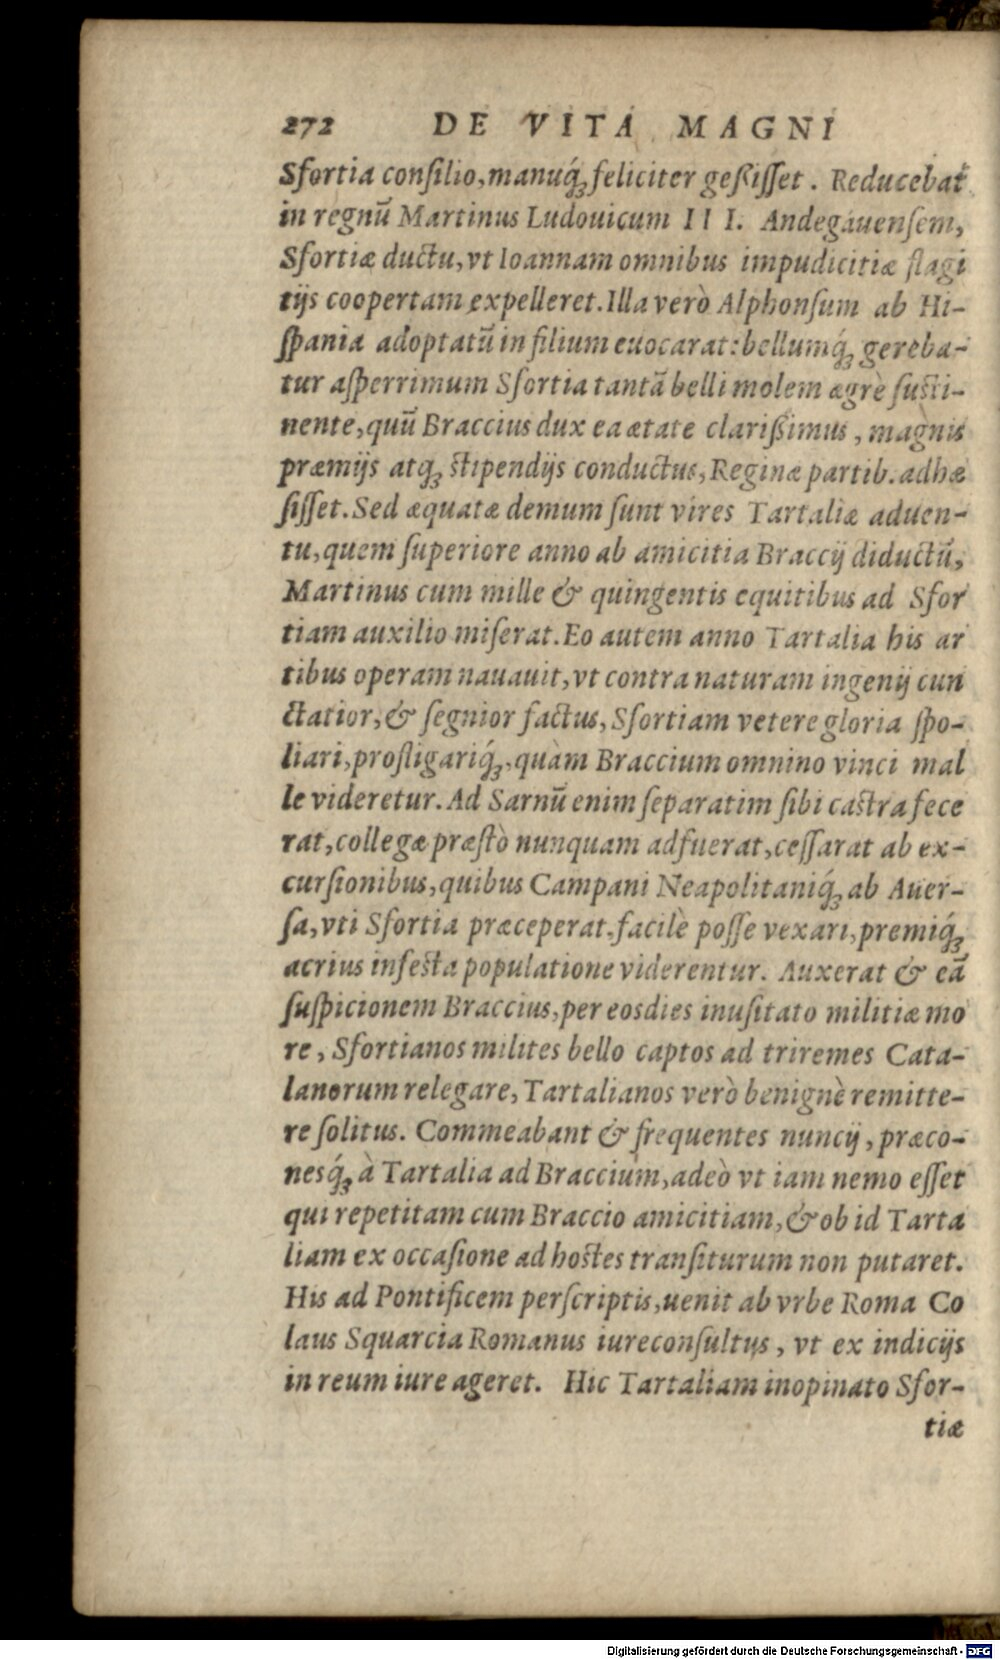 272 DE VITA MAGNI
Sfortia conſilio, manuq́ꝫ feliciter geſsiſſet. Reducebat
in regnū Martinus Ludouicum III. Andegauenſem,
Sfortiæ ductu, vt Ioannam omnibus impudicitiæ flagi
tijs coopertam expelleret. Illa verò Alphonſum ab Hi-
ſpania adoptatū in filium euocarat: bellumq́ꝫ gereba-
tur aſperrimum Sfortia tantā belli molem ægrè ſuſti-
nente, quū Braccius dux ea ætate clariſsimus, magnis
præmijs atqꝫ ſtipendijs conductus, Reginæ partib. adhæ
ſiſſet. Sed æquatæ demum ſunt vires Tartaliæ aduen-
tu, quem ſuperiore anno ab amicitia Braccij diductū,
Martinus cum mille & quingentis equitibus ad Sfor
tiam auxilio miſerat. Eo autem anno Tartalia his ar
tibus operam nauauit, vt contra naturam ingenij cun
ctatior, & ſegnior factus, Sfortiam vetere gloria ſpo-
liari, profligariq́ꝫ, quàm Braccium omnino vinci mal
le videretur. Ad Sarnū enim ſeparatim ſibi caſtra fece
rat, collegæ præſtò nunquam adfuerat, ceſſarat ab ex-
curſionibus, quibus Campani Neapolitaniq́ꝫ ab Auer-
ſa, vti Sfortia præceperat, facilè poſſe vexari, premiq́ꝫ
acrius infeſta populatione viderentur. Auxerat & eā
ſuſpicionem Braccius, per eos dies inuſitato militiæ mo
re, Sfortianos milites bello captos ad triremes Cata-
lanorum relegare, Tartalianos verò benignè remitte-
re ſolitus. Commeabant & frequentes nuncij, præco-
nesq́ꝫ à Tartalia ad Braccium, adeò vt iam nemo eſſet
qui repetitam cum Braccio amicitiam, & ob id Tarta
liam ex occaſione ad hoſtes tranſiturum non putaret.
His ad Pontificem perſcriptis, uenit ab vrbe Roma Co
laus Squarcia Romanus iureconſultus, vt ex indicijs
in reum iure ageret. Hic Tartaliam inopinato Sfor-
tiæ
Digitalisierung gefördert durch die Deutsche Forschungsgemeinschaft - DFG